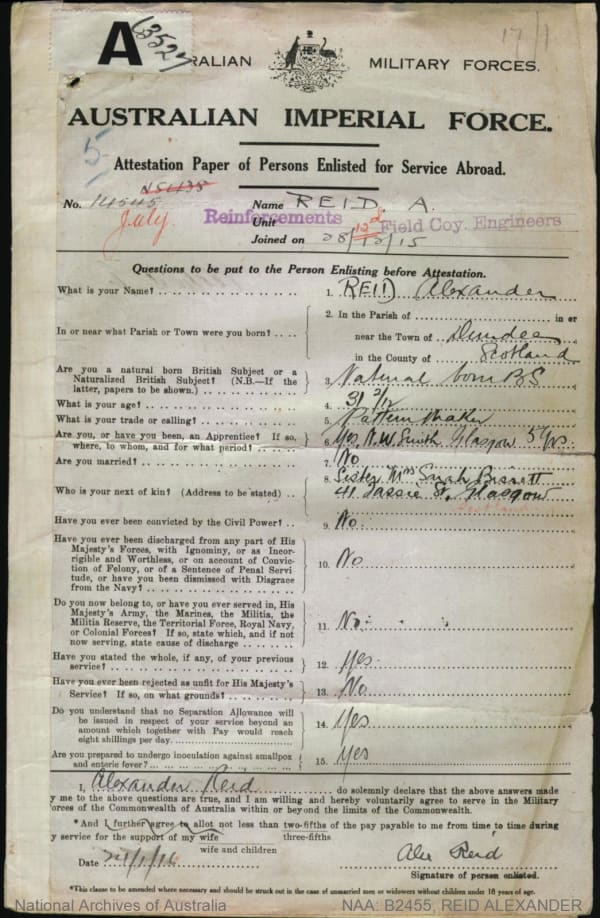 A 63527
17/1
RALIAN MILITARY FORCES.
AUSTRALIAN IMPERIAL FORCE.
5
Attestation Paper of Persons Enlisted for Service Abroad.
No. 14545 Name REID A.
July Reinforcements Unit Field Coy. Engineers
Joined on 28/12/15
Questions to be put to the Person Enlisting before Attestation.
What is your Name? 1. REID Alexander
2. In the Parish of in or
In or near what Parish or Town were you born? near the Town of Dundee
in the County of Scotland
Are you a natural born British Subject or a
Naturalized British Subject? (N.B.—If the
latter, papers to be shown.) 3. Natural born BS
What is your age? 4. 31
What is your trade or calling? 5. Pattern Maker
Are you, or have you been, an Apprentice? If so,
where, to whom, and for what period? 6. Yes. Smith Glasgow 5 yrs
Are you married? 7. No
8. Sister Mrs
Who is your next of kin? (Address to be stated) 41 St. Glasgow
Scotland
Have you ever been convicted by the Civil Power? 9. No.
Have you ever been discharged from any part of His
Majesty's Forces, with Ignominy, or as Incor-
rigible and Worthless, or on account of Convic-
tion of Felony, or of a Sentence of Penal Servi
tude, or have you been dismissed with Disgrace
from the Navy? 10. No
Do you now belong to, or have you ever served in, His
Majesty's Army, the Marines, the Militia, the
Militia Reserve, the Territorial Force, Royal Navy,
or Colonial Forces? If so, state which, and if not
now serving, state cause of discharge 11. No.
Have you stated the whole, if any, of your previous
service? 12. Yes.
Have you ever been rejected as unfit for His Majesty's
Service? If so, on what grounds? 13. No
Do you understand that no Separation Allowance will
be issued in respect of your service beyond an
amount which together with Pay would reach
eight shillings per day. 14. Yes
Are you prepared to undergo inoculation against smallpox
and enteric fever? 15. Yes
I, Alexander Reid do solemnly declare that the above answers made
y me to the above questions are true, and I am willing and hereby voluntarily agree to serve in the Military
orces of the Commonwealth of Australia within or beyond the limits of the Commonwealth.
*And I further agree to allot not less than two-fifths of the pay payable to me from time to time during
three-fifths
y service for the support of my wife
wife and children
Date 24/1/16 Alex Reid
Signature of person enlisted.
*This clause to be amended where necessary and should be struck out in the case of unmarried men or widowers without children under 18 years of age.
National Archives of Australia NAA: B2455, REID ALEXANDER